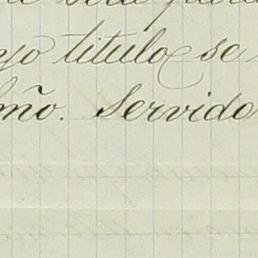 yo titulo se
mo. Servido